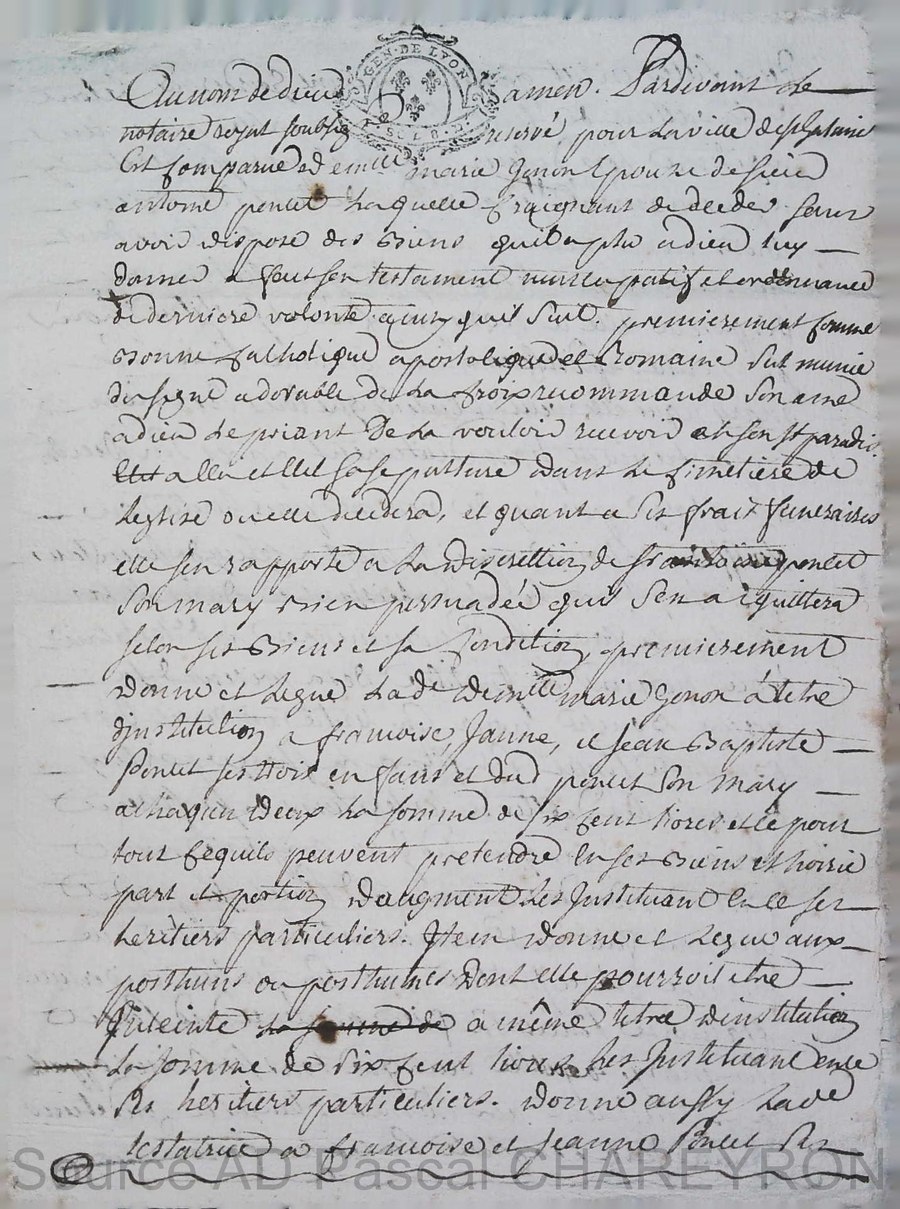 GEN · DE LYON
Au nom de dieu amen. Pardevant le
notaire royal soubsigné réservé pour la ville de
Est comparue demlle marie Gonon Epouze de sieur
antoine poncet Laquelle Craignant de deceder sans
avoir dispose des Biens quil a plu a dieu luy
donner a fait son testament nuncupatif et ordonnance
de derniere volonte ainsy quil suit. premierement comme
Bonne Catholique apostolique et Romaine s'est munie
du signe adorable de La Croix recommande son ame
a dieu Le priant De La vouloir recevoir en son st paradis.
a elle et Elit sa sepulture dans le Cimetiere de
Leglise ou elle decedera, et quant a ses frait funeraires
elle sen rapporte a La discrettion de sr antoine poncet
son mary Bien persuadée quil s'en acquittera
selon ses Biens et sa Condition, premierement
Donne et Legue La de demlle marie Gonon à titre
dinstitution a francoise, Janne, et Jean Baptiste
Poncet ses trois enfans et dud poncet son mary
a chaqun deux La somme de six cent livres et ce pour
tout cequils peuvent pretendre en ses Biens et hoirie
part et portion daugment Les Instituant en ce ses
heritiers particuliers. Item donne et Legue aux
posthums ou posthumes dont elle pourroit etre
Enceinte la somme de a même titre dinstitution
La somme de six cent livres Les Instituant en ce
ses heritiers particuliers. donne aussy Lade
testatrice a francoise et Jeanne Poncet ses
Source AD Pascal CHAREYRON